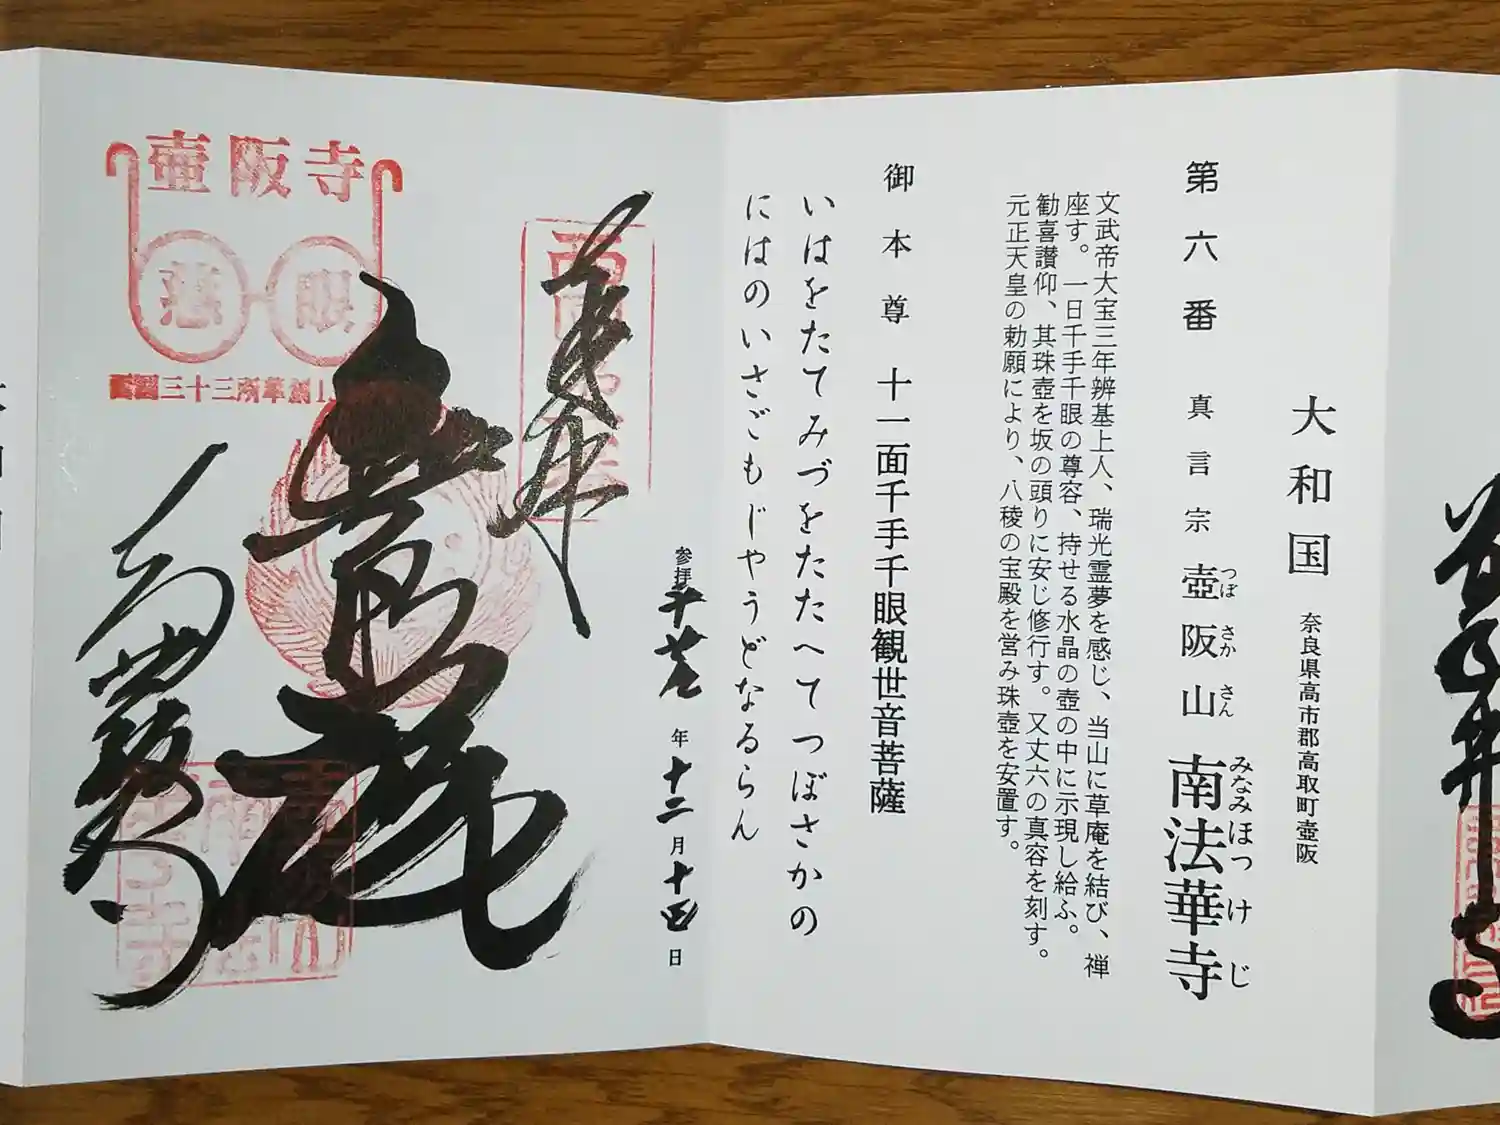 大和国 奈良県高市郡高取町壺阪
第六番 真言宗 壺阪山 南法華寺
つぼ さか さん みなみほっけじ
文武帝大宝三年辨基上人、瑞光霊夢を感じ、当山に草庵を結び、禅
座す。一日千手千眼の尊容、持せる水晶の壺の中に示現し給ふ。
勧喜讃仰、其珠壺を坂の頭りに安じ修行す。又丈六の真容を刻す。
元正天皇の勅願により、八稜の宝殿を営み珠壺を安置す。
御本尊 十一面千手千眼観世音菩薩
いはをたてみづをたたへてつぼさかの
にはのいさごもじやうどなるらん
参拝 年十二月十四日
奉拝
壺阪寺
慈眼
三十三所草創1